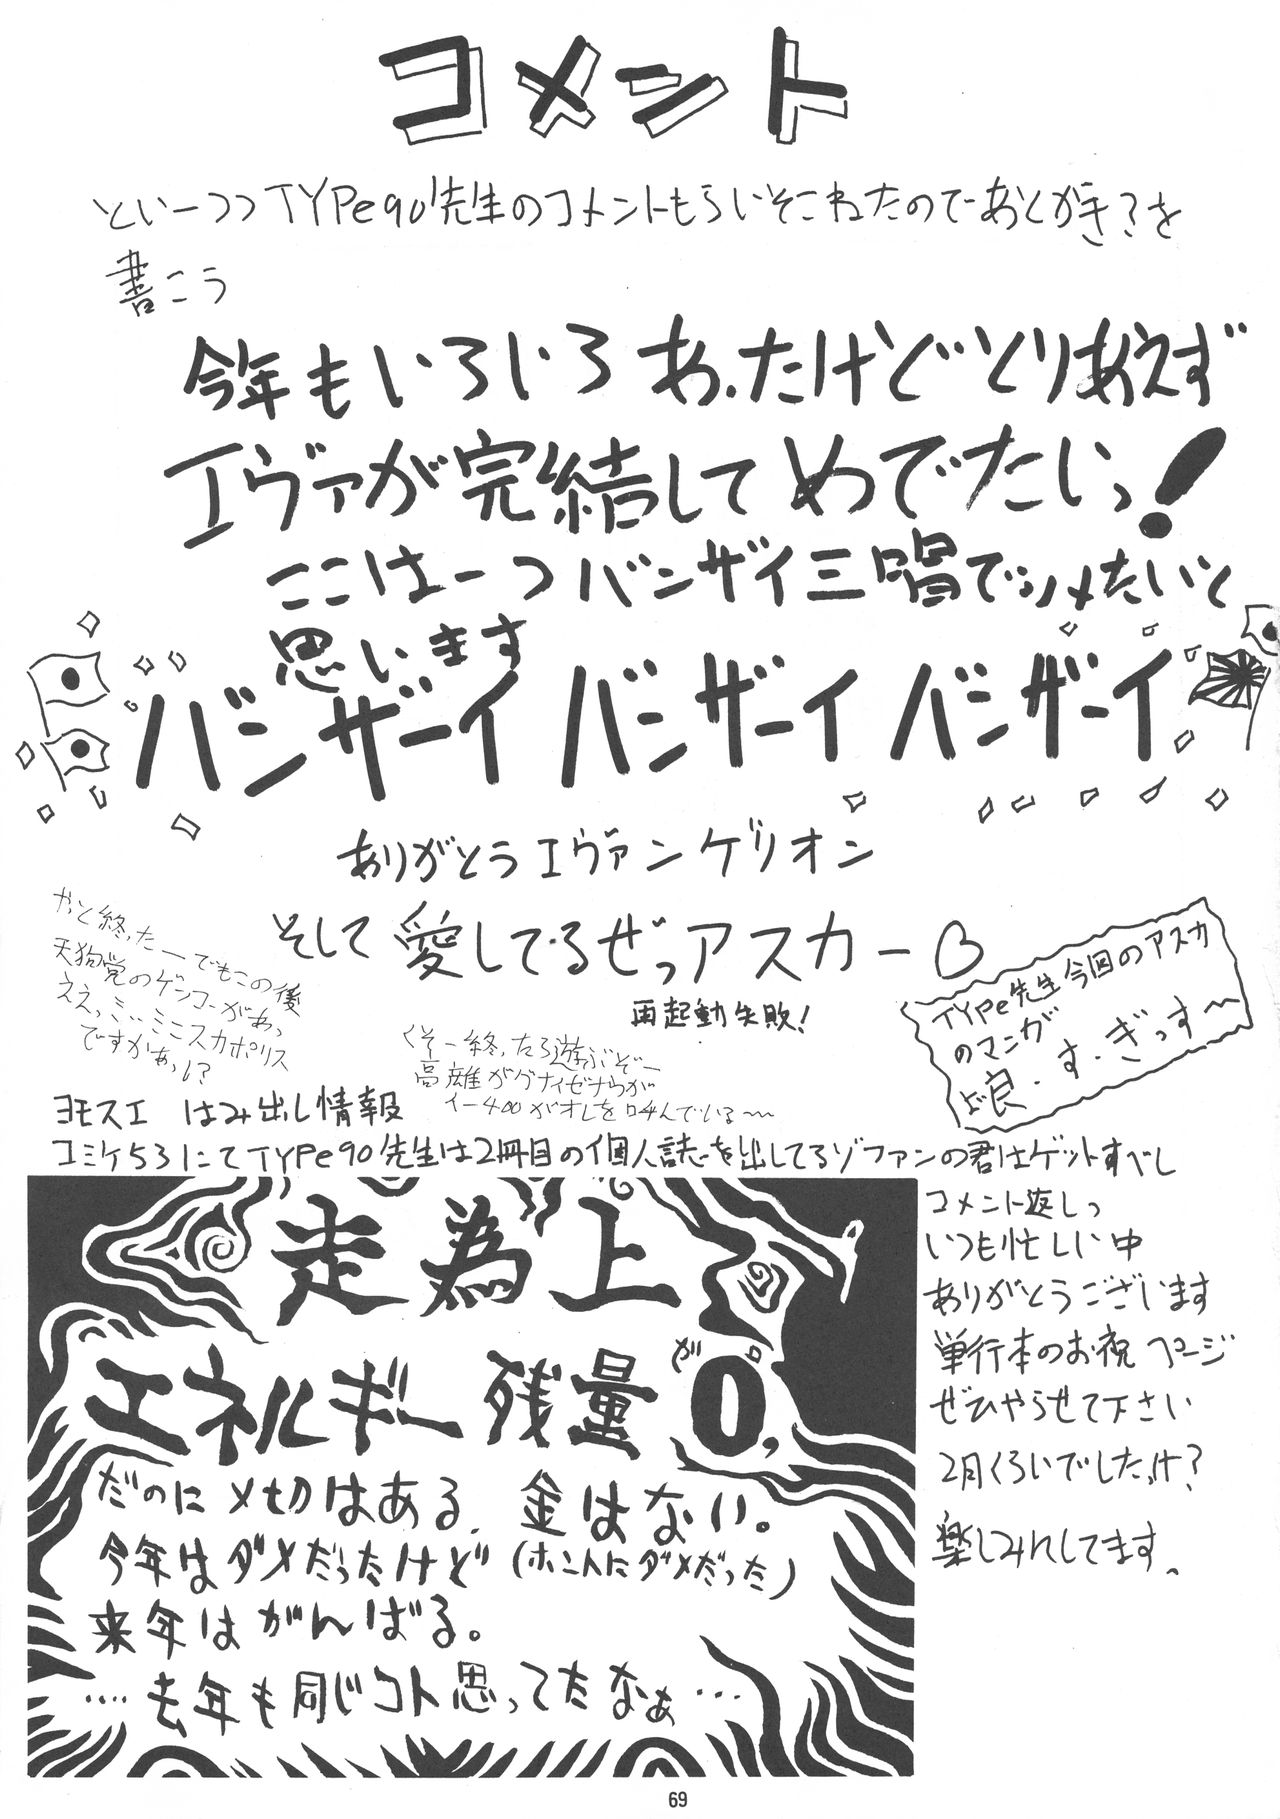 コメント
といーつつTYPe90先生のコメントもらいそこねたのでーあとがき?を
書こう
今年もいろいろあったけどとりあえず
エヴァが完結してめでたいっ!
ここは一つバンザイ三唱でシメたいと
思います
バンザーイ バンザーイ バンザーイ
ありがとうエヴァンゲリオン
そして愛してるぜっアスカー
再起動失敗!
やっと終ったーでもこの後
天狗党のゲンコーがあっ
ええっミ…ミニスカポリス
ですかぁっ!?
くそー終ったら遊ぶぞー
高雄が
イー400がオレを呼んでいる〜
TYPe先生今回のアスカ
のマンガ
良・す・ぎっす〜
ヨモスエ はみ出し情報
コミケ53にてTYPe90先生は2冊目の個人誌を出してるゾファンの君はゲットすべし
コメント返しっ
いつも忙しい中
ありがとうございます
単行本のお祝ページ
ぜひやらせて下さい
2月くらいでしたっけ?
楽しみにしてます。
走為上
エネルギー残量が0,
ゼロ
だのに〆切はある、金はない。
今年はダメだったけど(ホントにダメだった)
来年はがんばる。
‥‥去年も同じコト思ってたなぁ‥‥
69